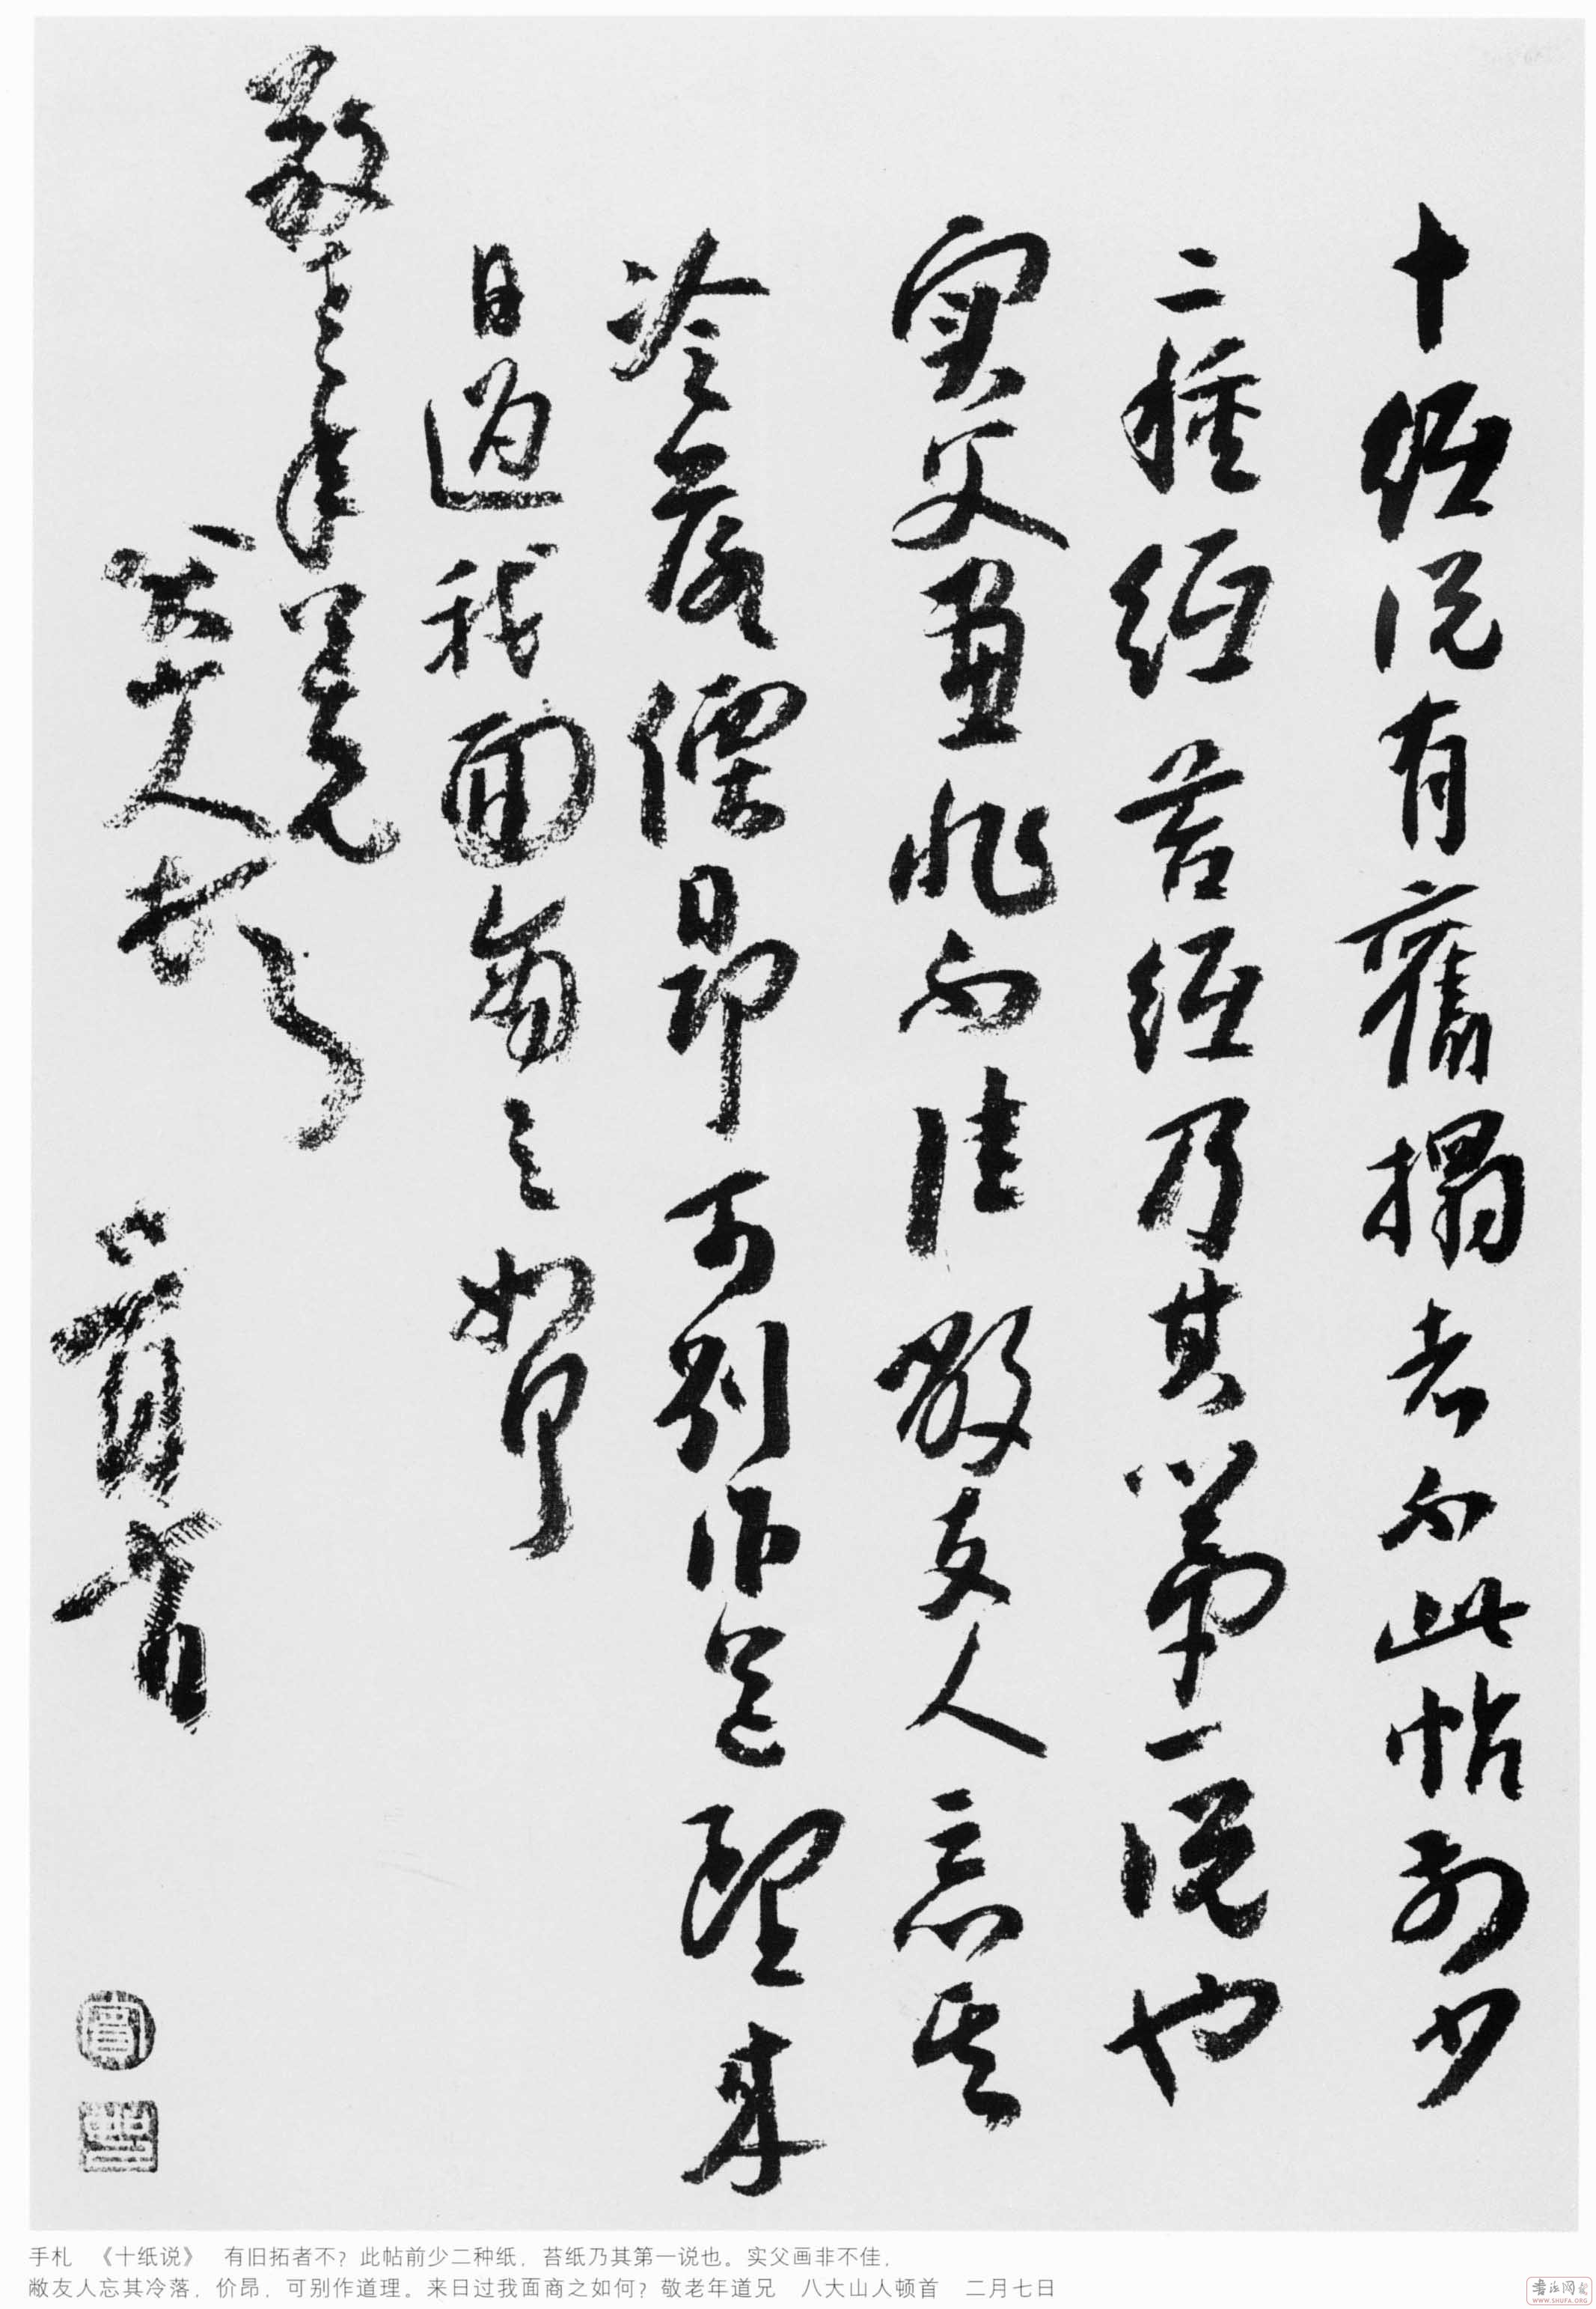 十紙说有舊搨者不此帖前少
二種紙苔紙乃其第一说也
实父畫非不佳敝友人忘其
冷落價昂可别作道理来
日過我面商之如何
敬老年道兄
八大山人頓首 二月七日
手札 《十纸说》 有旧拓者不？此帖前少二种纸，苔纸乃其第一说也。实父画非不佳，
敝友人忘其冷落，价昂，可别作道理。来日过我面商之如何？敬老年道兄 八大山人顿首 二月七日
書法网
WWW.SHUFA.ORG